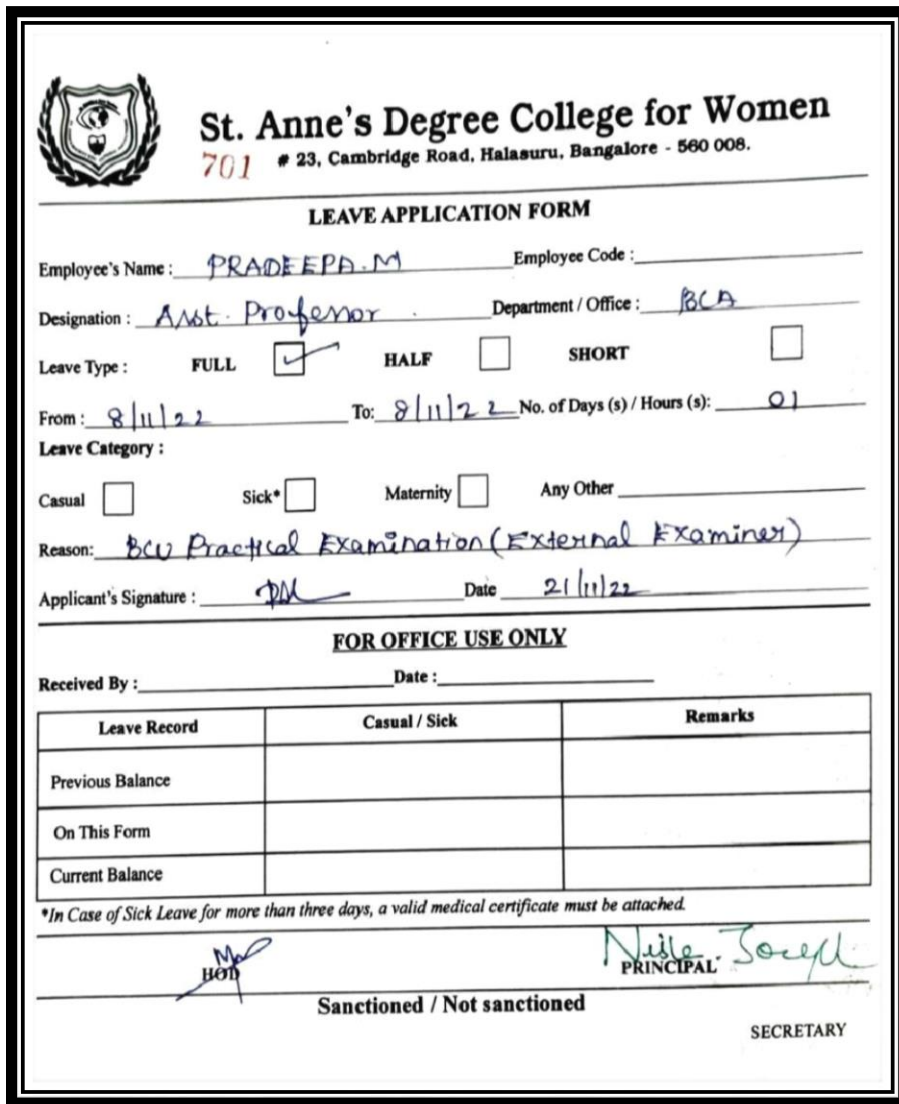 St. Anne's Degree College for Women
701 # 23, Cambridge Road, Halasuru, Bangalore - 560 008.
LEAVE APPLICATION FORM
Employee's Name : PRADEEPA.M Employee Code :
Designation : Asst. Professor Department / Office : BCA
Leave Type : FULL HALF SHORT
From : 8/11/22 To: 8/11/22 No. of Days (s) / Hours (s): 01
Leave Category :
Casual Sick* Maternity Any Other
Reason: BCU Practical Examination (External Examiner)
Applicant's Signature : Date 21/11/22
FOR OFFICE USE ONLY
Received By : Date :
Leave Record Casual / Sick Remarks
Previous Balance
On This Form
Current Balance
*In Case of Sick Leave for more than three days, a valid medical certificate must be attached.
HOD PRINCIPAL
Sanctioned / Not sanctioned
SECRETARY